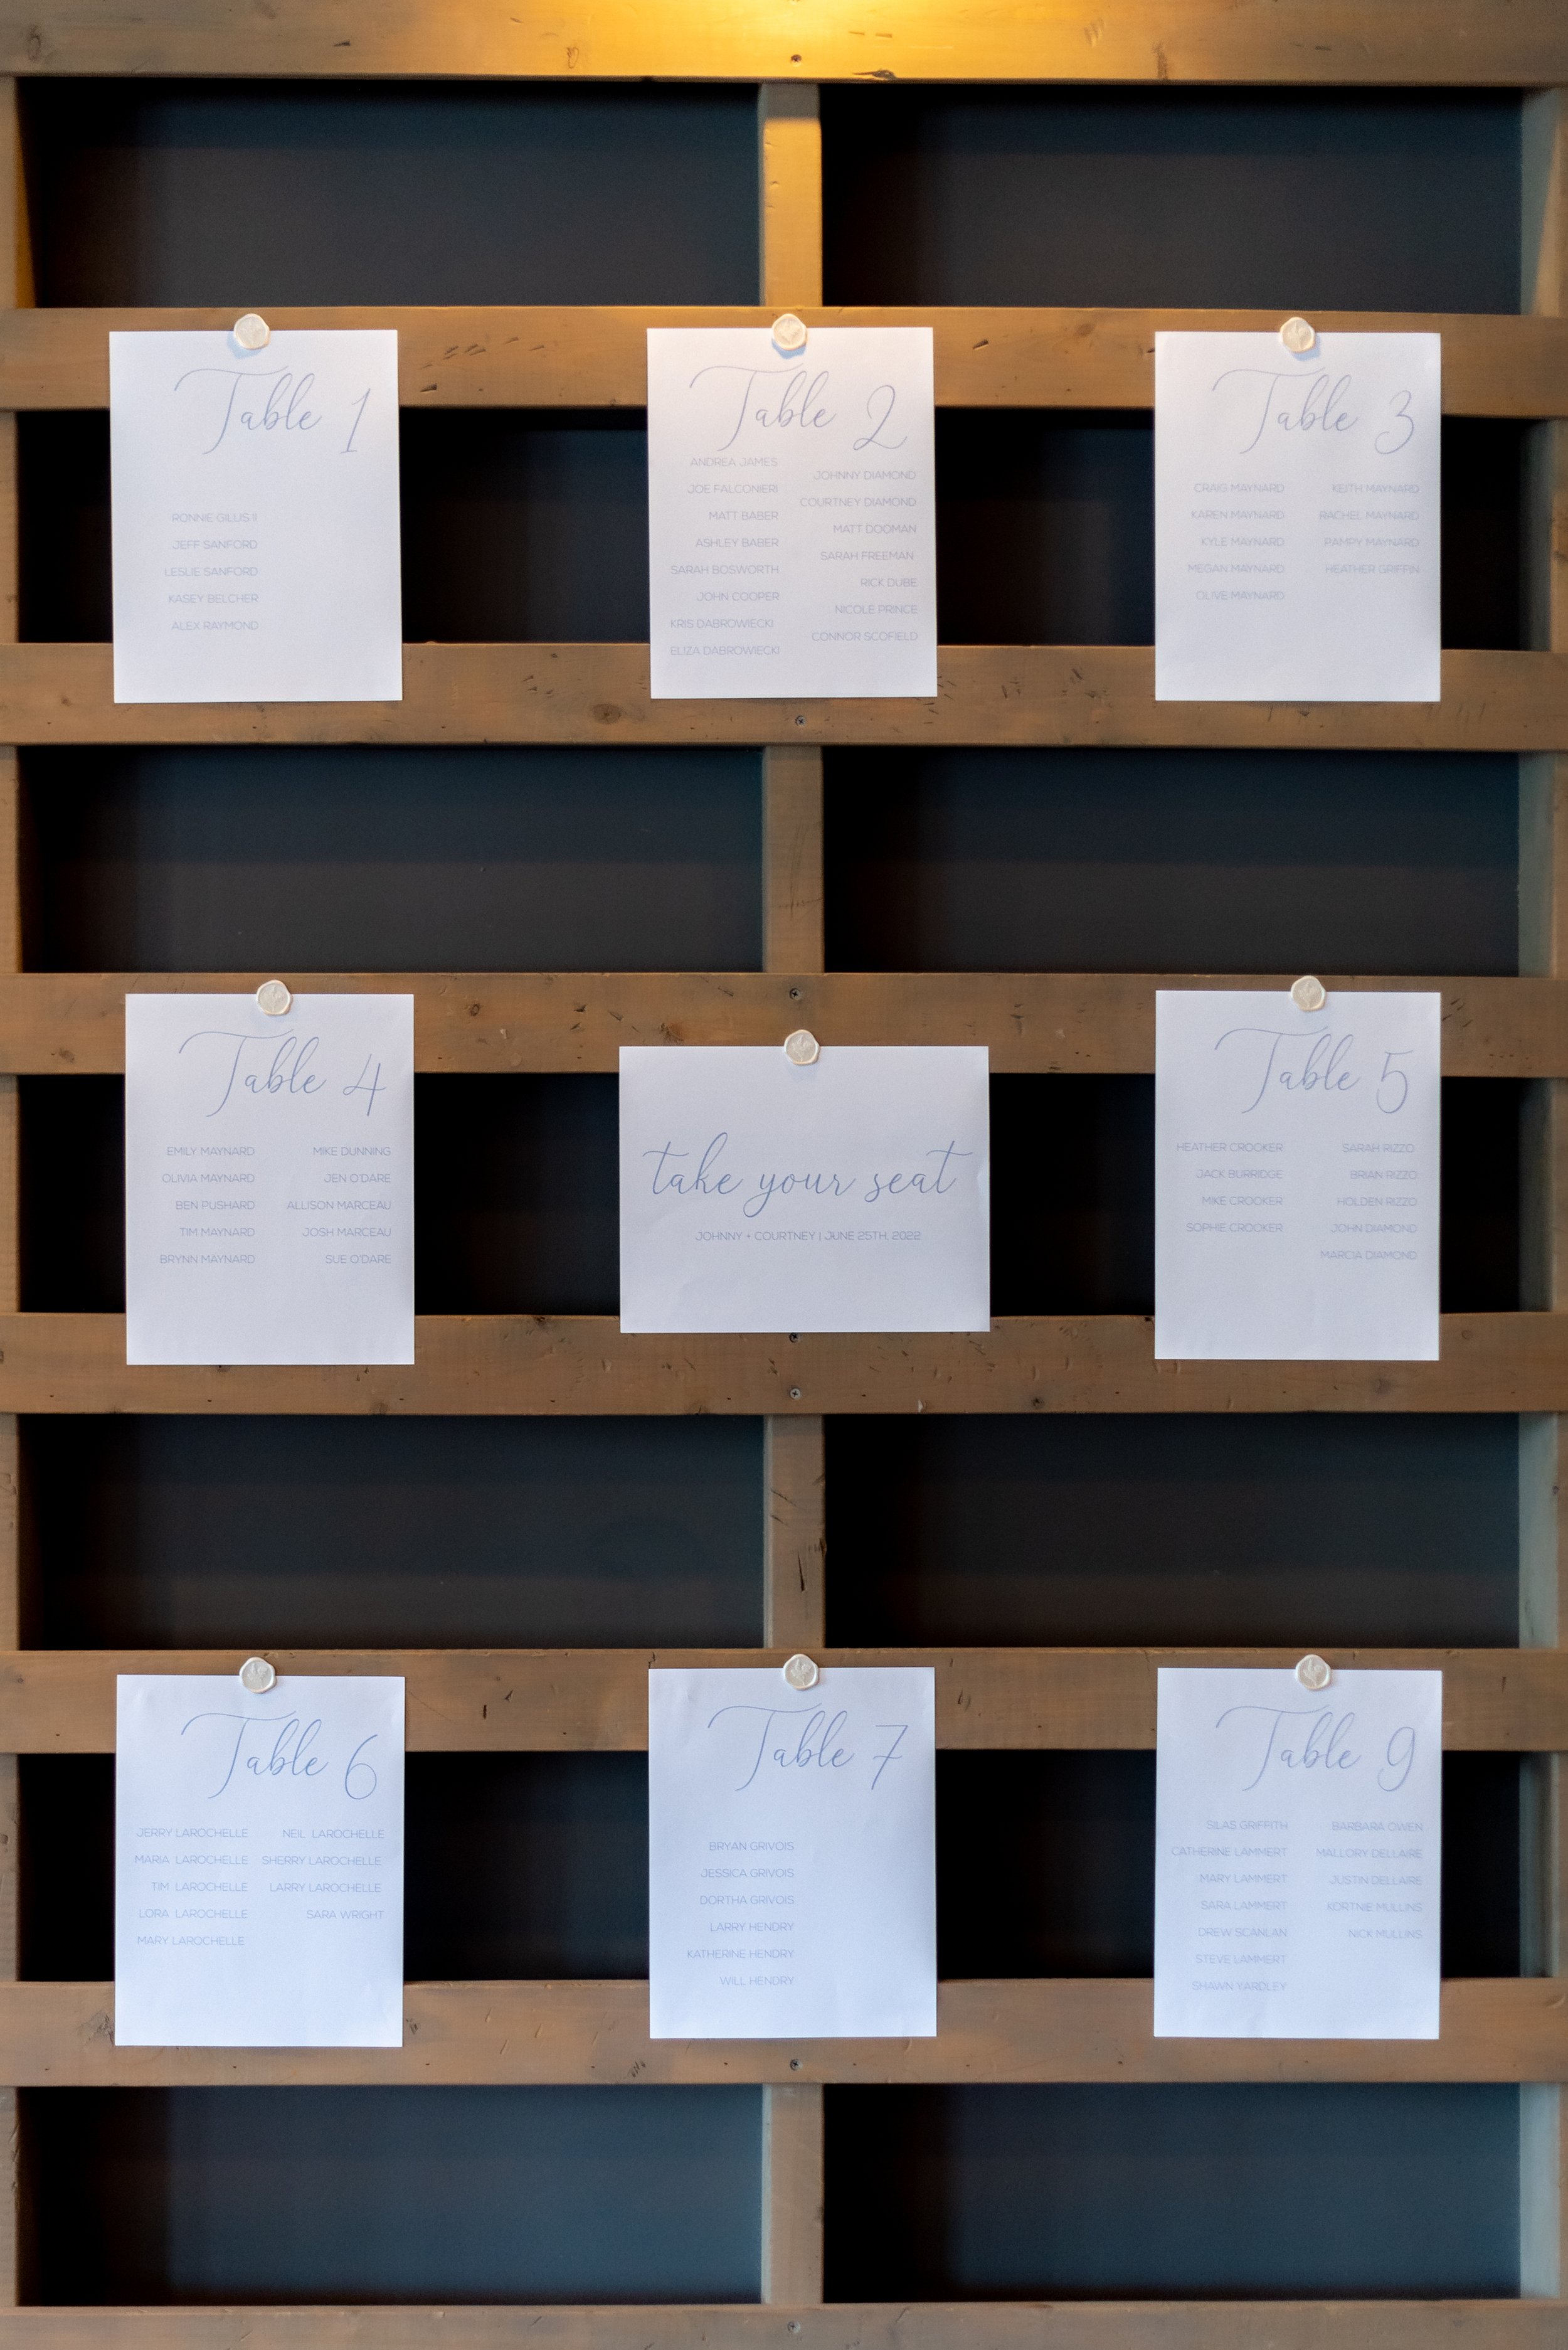 Table 1
RONNIE GILLIS II
JEFF SANFORD
LESLIE SANFORD
KASEY BELCHER
ALEX RAYMOND
Table 2
ANDREA JAMES
JOE FALCONIERI
MATT BABER
ASHLEY BABER
SARAH BOSWORTH
JOHN COOPER
KRIS DABROWIECKI
ELIZA DABROWIECKI
JOHNNY DIAMOND
COURTNEY DIAMOND
MATT DOOMAN
SARAH FREEMAN
RICK DUBE
NICOLE PRINCE
CONNOR SCOFIELD
Table 3
CRAIG MAYNARD
KAREN MAYNARD
KYLE MAYNARD
MEGAN MAYNARD
OLIVE MAYNARD
KEITH MAYNARD
RACHEL MAYNARD
PAMPY MAYNARD
HEATHER GRIFFIN
Table 4
EMILY MAYNARD
OLIVIA MAYNARD
BEN PUSHARD
TIM MAYNARD
BRYNN MAYNARD
MIKE DUNNING
JEN O'DARE
ALLISON MARCEAU
JOSH MARCEAU
SUE O'DARE
take your seat
JOHNNY + COURTNEY | JUNE 25TH, 2022
Table 5
HEATHER CROOKER
JACK BURRIDGE
MIKE CROOKER
SOPHIE CROOKER
SARAH RIZZO
BRIAN RIZZO
HOLDEN RIZZO
JOHN DIAMOND
MARCIA DIAMOND
Table 6
JERRY LAROCHELLE
MARIA LAROCHELLE
TIM LAROCHELLE
LORA LAROCHELLE
MARY LAROCHELLE
NEIL LAROCHELLE
SHERRY LAROCHELLE
LARRY LAROCHELLE
SARA WRIGHT
Table 7
BRYAN GRIVOIS
JESSICA GRIVOIS
DORTHA GRIVOIS
LARRY HENDRY
KATHERINE HENDRY
WILL HENDRY
Table 9
SILAS GRIFFITH
CATHERINE LAMMERT
MARY LAMMERT
SARA LAMMERT
DREW SCANLAN
STEVE LAMMERT
SHAWN YARDLEY
BARBARA OWEN
MALLORY DELLAIRE
JUSTIN DELLAIRE
KORTNIE MULLINS
NICK MULLINS